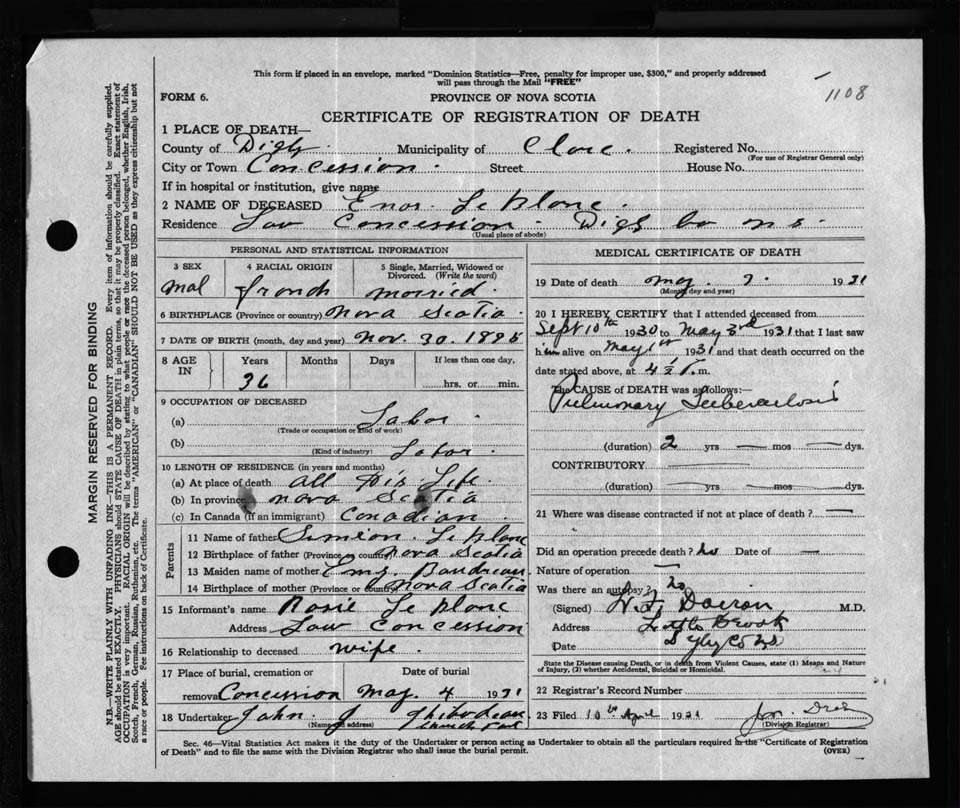 This form if placed in an envelope, marked "Dominion Statistics—Free, penalty for improper use, $300," and properly addressed
will pass through the Mail "FREE"
1108
FORM 6.
PROVINCE OF NOVA SCOTIA
CERTIFICATE OF REGISTRATION OF DEATH
1 PLACE OF DEATH—
County of Digby Municipality of Clare. Registered No.
(For use of Registrar General only)
City or Town Concession. Street House No.
If in hospital or institution, give name
2 NAME OF DECEASED Enos. Le Blanc.
Residence Low Concession. Digby Co N S.
(Usual place of abode)
PERSONAL AND STATISTICAL INFORMATION
3 SEX
Mal
4 RACIAL ORIGIN
french
5 Single, Married, Widowed or
Divorced. (Write the word)
Married.
6 BIRTHPLACE (Province or country) Nova Scotia.
7 DATE OF BIRTH (month, day and year) Nov. 30. 1895
8 AGE
IN
Years
36
Months
Days
If less than one day,
hrs. or min.
9 OCCUPATION OF DECEASED
(a) Labor.
(Trade or occupation or kind of work)
(b) Labor.
(Kind of industry)
10 LENGTH OF RESIDENCE (in years and months)
(a) At place of death all his Life.
(b) In province Nova Scotia
(c) In Canada (if an immigrant) Canadian.
Parents
11 Name of father Simeon. Le Blanc
12 Birthplace of father (Province or country) Nova Scotia
13 Maiden name of mother
14 Birthplace of mother (Province or country) Nova Scotia
15 Informant's name Rosie Le Blanc
Address Low Concession
16 Relationship to deceased wife.
17 Place of burial, cremation or
Date of burial
removal Concession May. 4 1931
18 Undertaker John. J Thibodeau
(Name and address) Church Point
MEDICAL CERTIFICATE OF DEATH
19 Date of death May. 1931
(Month, day and year)
20 I HEREBY CERTIFY that I attended deceased from
Sept 10th 1930 to May 3rd 1931 that I last saw
him alive on May 1st 1931 and that death occurred on the
date stated above, at m.
The CAUSE OF DEATH was as follows:—
Pulmonary Tuberculosis
(duration) 2 yrs — mos — dys.
CONTRIBUTORY
(duration) yrs — mos — dys.
21 Where was disease contracted if not at place of death? —
Did an operation precede death? No Date of —
Nature of operation —
Was there an autopsy? No
(Signed) M.D.
Address Little Brook
Date Digby Co NS
State the Disease causing Death, or in death from Violent Causes, state (1) Means and Nature
of Injury, (2) whether Accidental, Suicidal or Homicidal.
22 Registrar's Record Number
23 Filed 10th 1931
(Division Registrar)
Sec. 46—Vital Statistics Act makes it the duty of the Undertaker or person acting as Undertaker to obtain all the particulars required in the "Certificate of Registration
of Death" and to file the same with the Division Registrar who shall issue the burial permit.
(OVER)
MARGIN RESERVED FOR BINDING
N.B.—WRITE PLAINLY WITH UNFADING INK—THIS IS A PERMANENT RECORD. Every item of information should be carefully supplied.
AGE should be stated EXACTLY. PHYSICIANS should STATE CAUSE OF DEATH in plain terms, so that it may be properly classified. Exact statement of
OCCUPATION is very important. RACIAL ORIGIN will be described by stating to what people or race the deceased person belonged, whether English, Irish,
Scotch, French, German, Russian, Ruthenian, etc. The terms "AMERICAN" or "CANADIAN" SHOULD NOT BE USED as they express citizenship but not
a race or people. See instructions on back of Certificate.